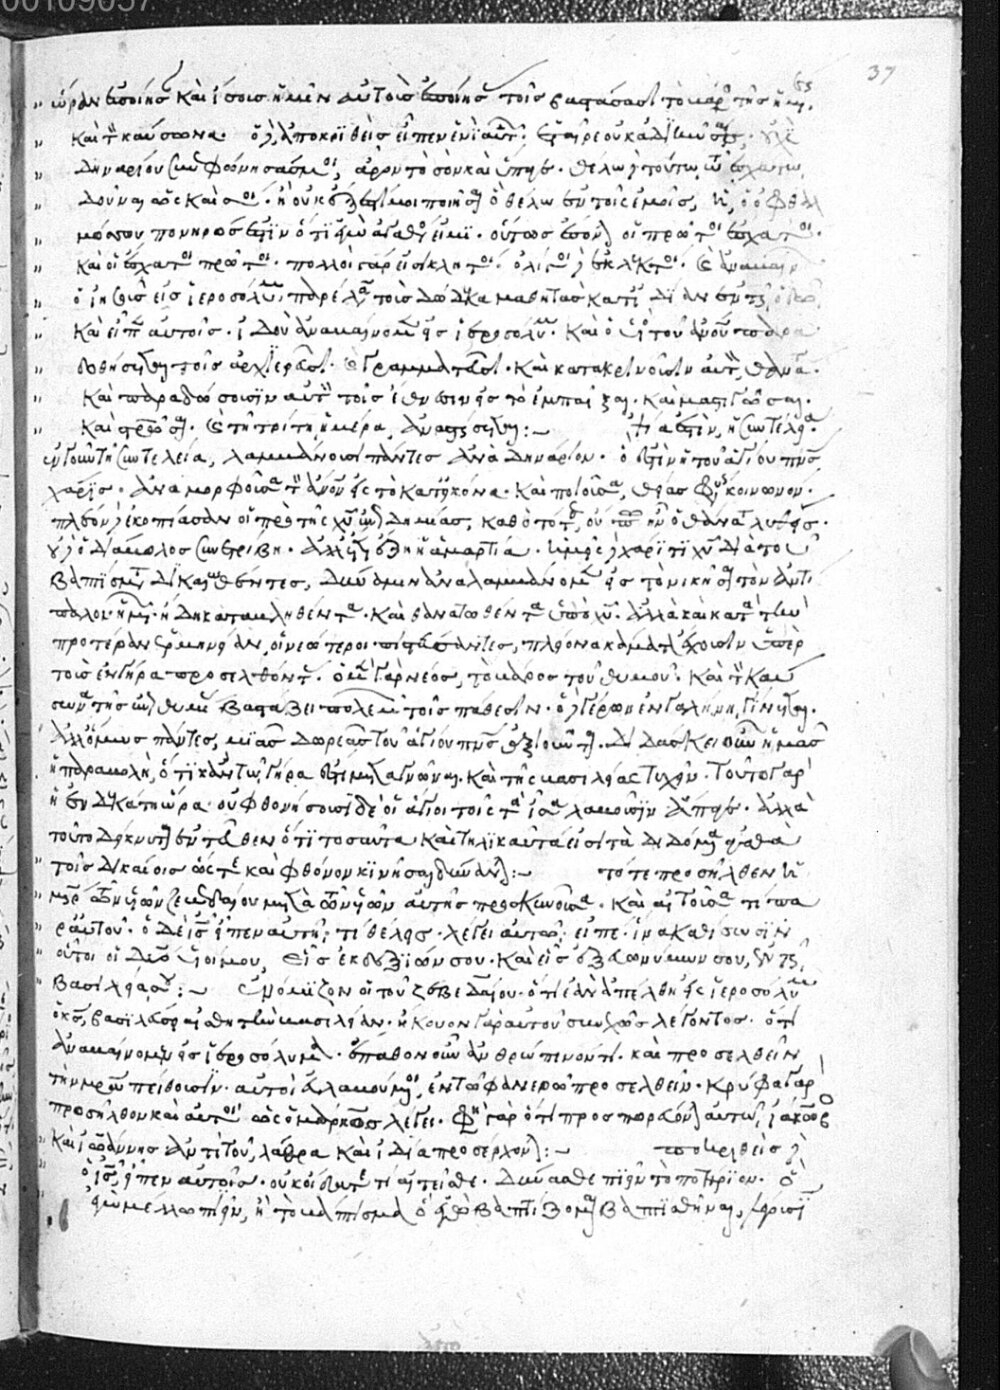 00109037
37
ὥραν ἐποίησαν καὶ ἴσους ἡμῖν αὐτοὺς ἐποίησας τοῖς βαστάσασι τὸ βάρος τῆς ἡμέρας
καὶ τὸν καύσωνα. ὁ δὲ ἀποκριθεὶς εἶπεν ἑνὶ αὐτῶν. ἑταῖρε οὐκ ἀδικῶ σε. οὐχὶ
δηναρίου συνεφώνησάς μοι, ἆρον τὸ σὸν καὶ ὕπαγε. θέλω δὲ τούτω τῶ ἐσχάτω
δοῦναι ὡς καὶ σοι. ἢ οὐκ ἔξεστί μοι ποιῆσαι ὃ θέλω ἐν τοῖς ἐμοῖς, εἰ ὁ ὀφθαλ
μός σου πονηρός ἐστιν ὅτι ἐγὼ ἀγαθός εἰμι. οὕτως ἔσονται οἱ πρῶτοι ἔσχατοι.
καὶ οἱ ἔσχατοι πρῶτοι. πολλοὶ γάρ εἰσι κλητοί. ὀλίγοι δὲ ἐκλεκτοί. καὶ ἀναβαίνων
ὁ ἰησοῦς εἰς ἱεροσόλυμα παρέλαβε τοὺς δώδεκα μαθητὰς κατ' ἰδίαν ἐν τῆ ὁδῶ
καὶ εἶπεν αὐτοῖς. ἰδοὺ ἀναβαίνομεν εἰς ἱεροσόλυμα. καὶ ὁ υἱὸς τοῦ ἀνθρώπου παρα
δοθήσεται τοῖς ἀρχιερεῦσι. καὶ γραμματεῦσι. καὶ κατακρινοῦσιν αὐτὸν θανάτω.
καὶ παραδώσουσιν αὐτὸν τοῖς ἔθνεσιν εἰς τὸ ἐμπαῖξαι. καὶ μαστιγῶσαι.
καὶ σταυρῶσαι. καὶ τῆ τρίτη ἡμέρα ἀναστήσεται:~
ἐν τούτω τῆ συντελεία, λαμβάνουσι πάντες ἀνὰ δηνάριον. ὅ ἐστιν ἡ τοῦ ἁγίου πνεύματος
χάρις. ἀναμορφοῦσα τὸν ἄνθρωπον εἰς τὸ κατ' εἰκόνα. καὶ ποιοῦσα θείας φύσεως κοινωνόν.
πλέον δὲ ἐκοπίασαν οἱ πρὸ τῆς χριστοῦ ἐνδημίας, καθὸ τότε οὔπω ἦν ὁ θάνατος λυθείς.
οὐδὲ ὁ διάβολος συνετρίβη. ἀλλ' ἔτι ἔζη ἡ ἁμαρτία. ἡμεῖς δὲ χάριτι χριστοῦ διὰ τοῦ
βαπτίσματος δικαιωθέντες, δυνάμιν ἀναλαμβάνομεν εἰς τὸ νικῆσαι τὸν ἀντί
παλον ἡμῶν. ἤδη καταβληθέντα. καὶ θανατωθέντα ὑπὸ χριστοῦ. ἀλλὰ καὶ κατὰ τὴν
προτέραν ἑρμηνείαν, οἱ νεώτεροι πιστεύσαντες, πλείονα κάματον ἔχουσιν ὑπὲρ
τοὺς ἐν γήρα προσελθόντας. ὁ μὲν γὰρ νέος, τὸ βάρος τοῦ θυμοῦ. καὶ τὸν καύ
σωνα τῆς ἐπιθυμίας βαστάζει πολεμῶν τοῖς πάθεσιν. ὁ δὲ γέρων ἐν γαλήνη γίνεται.
ἀλλ' ὅμως πάντες, μιᾶς δωρεᾶς τοῦ ἁγίου πνεύματος ἀξιοῦνται. διδάσκει οὖν ἡμᾶς
ἡ παραβολὴ, ὅτι
ἡ ἑνδεκάτη ὥρα. οὐ φθονήσουσι δὲ οἱ ἅγιοι τοῖς τὰ ἴσα λαβοῦσιν ἄπαγε. ἀλλὰ
τοῦτο δείκνυται ἐντεῦθεν ὅτι τοσαῦτα καὶ τηλικαῦτά εἰσι τὰ διδόμενα ἀγαθὰ
τοῖς δικαίοις ὥστε καὶ φθόνον κινῆσαι δύνανται:~ τότε προσῆλθεν ἡ
μήτηρ τῶν υἱῶν ζεβεδαίου μετὰ τῶν υἱῶν αὐτῆς προσκυνοῦσα. καὶ αἰτοῦσά τι πα
ρ' αὐτοῦ. ὁ δὲ ἰησοῦς εἶπεν αὐτῆ. τί θέλεις. λέγει αὐτῶ. εἰπὲ ἵνα καθίσωσιν
οὗτοι οἱ δύο υἱοί μου, εἷς ἐκ δεξιῶν σου. καὶ εἷς ἐξ εὐωνύμων σου, ἐν τῆ
βασιλεία σου:~ ἐνόμιζον οἱ τοῦ ζεβεδαίου. ὅτι ἐὰν ἀπέλθη εἰς ἱεροσόλυμα
ὁ κύριος, βασιλεύσει αἰσθητὴν βασιλείαν. ἤκουον γὰρ αὐτοῦ συνεχῶς λέγοντος. ὅτι
ἀναβαίνομεν εἰς ἱεροσόλυμα. ἔπαθον οὖν ἀνθρώπινόν τι. καὶ προσελθεῖν
τὴν μητέρα πείθουσιν. αὐτοὶ εὐλαβούμενοι ἐν τῶ φανερῶ προσελθεῖν. κρύφα γὰρ
προσῆλθον καὶ αὐτοί ὡς ὁ μάρκος λέγει. φησὶ γὰρ ὅτι προσπορεύονται αὐτῶ ἰάκωβος
καὶ ἰωάννης ἀντὶ τοῦ, λάθρα καὶ ἰδία προσέρχονται:~ ποκριθεὶς δὲ
ὁ ἰησοῦς εἶπεν αὐτοῖς. οὐκ οἴδατε τί αἰτεῖσθε. δύνασθε πιεῖν τὸ ποτήριον. ὃ
ἐγὼ μέλλω πίνειν, ἢ τὸ βάπτισμα ὃ ἐγὼ βαπτίζομαι βαπτισθῆναι,